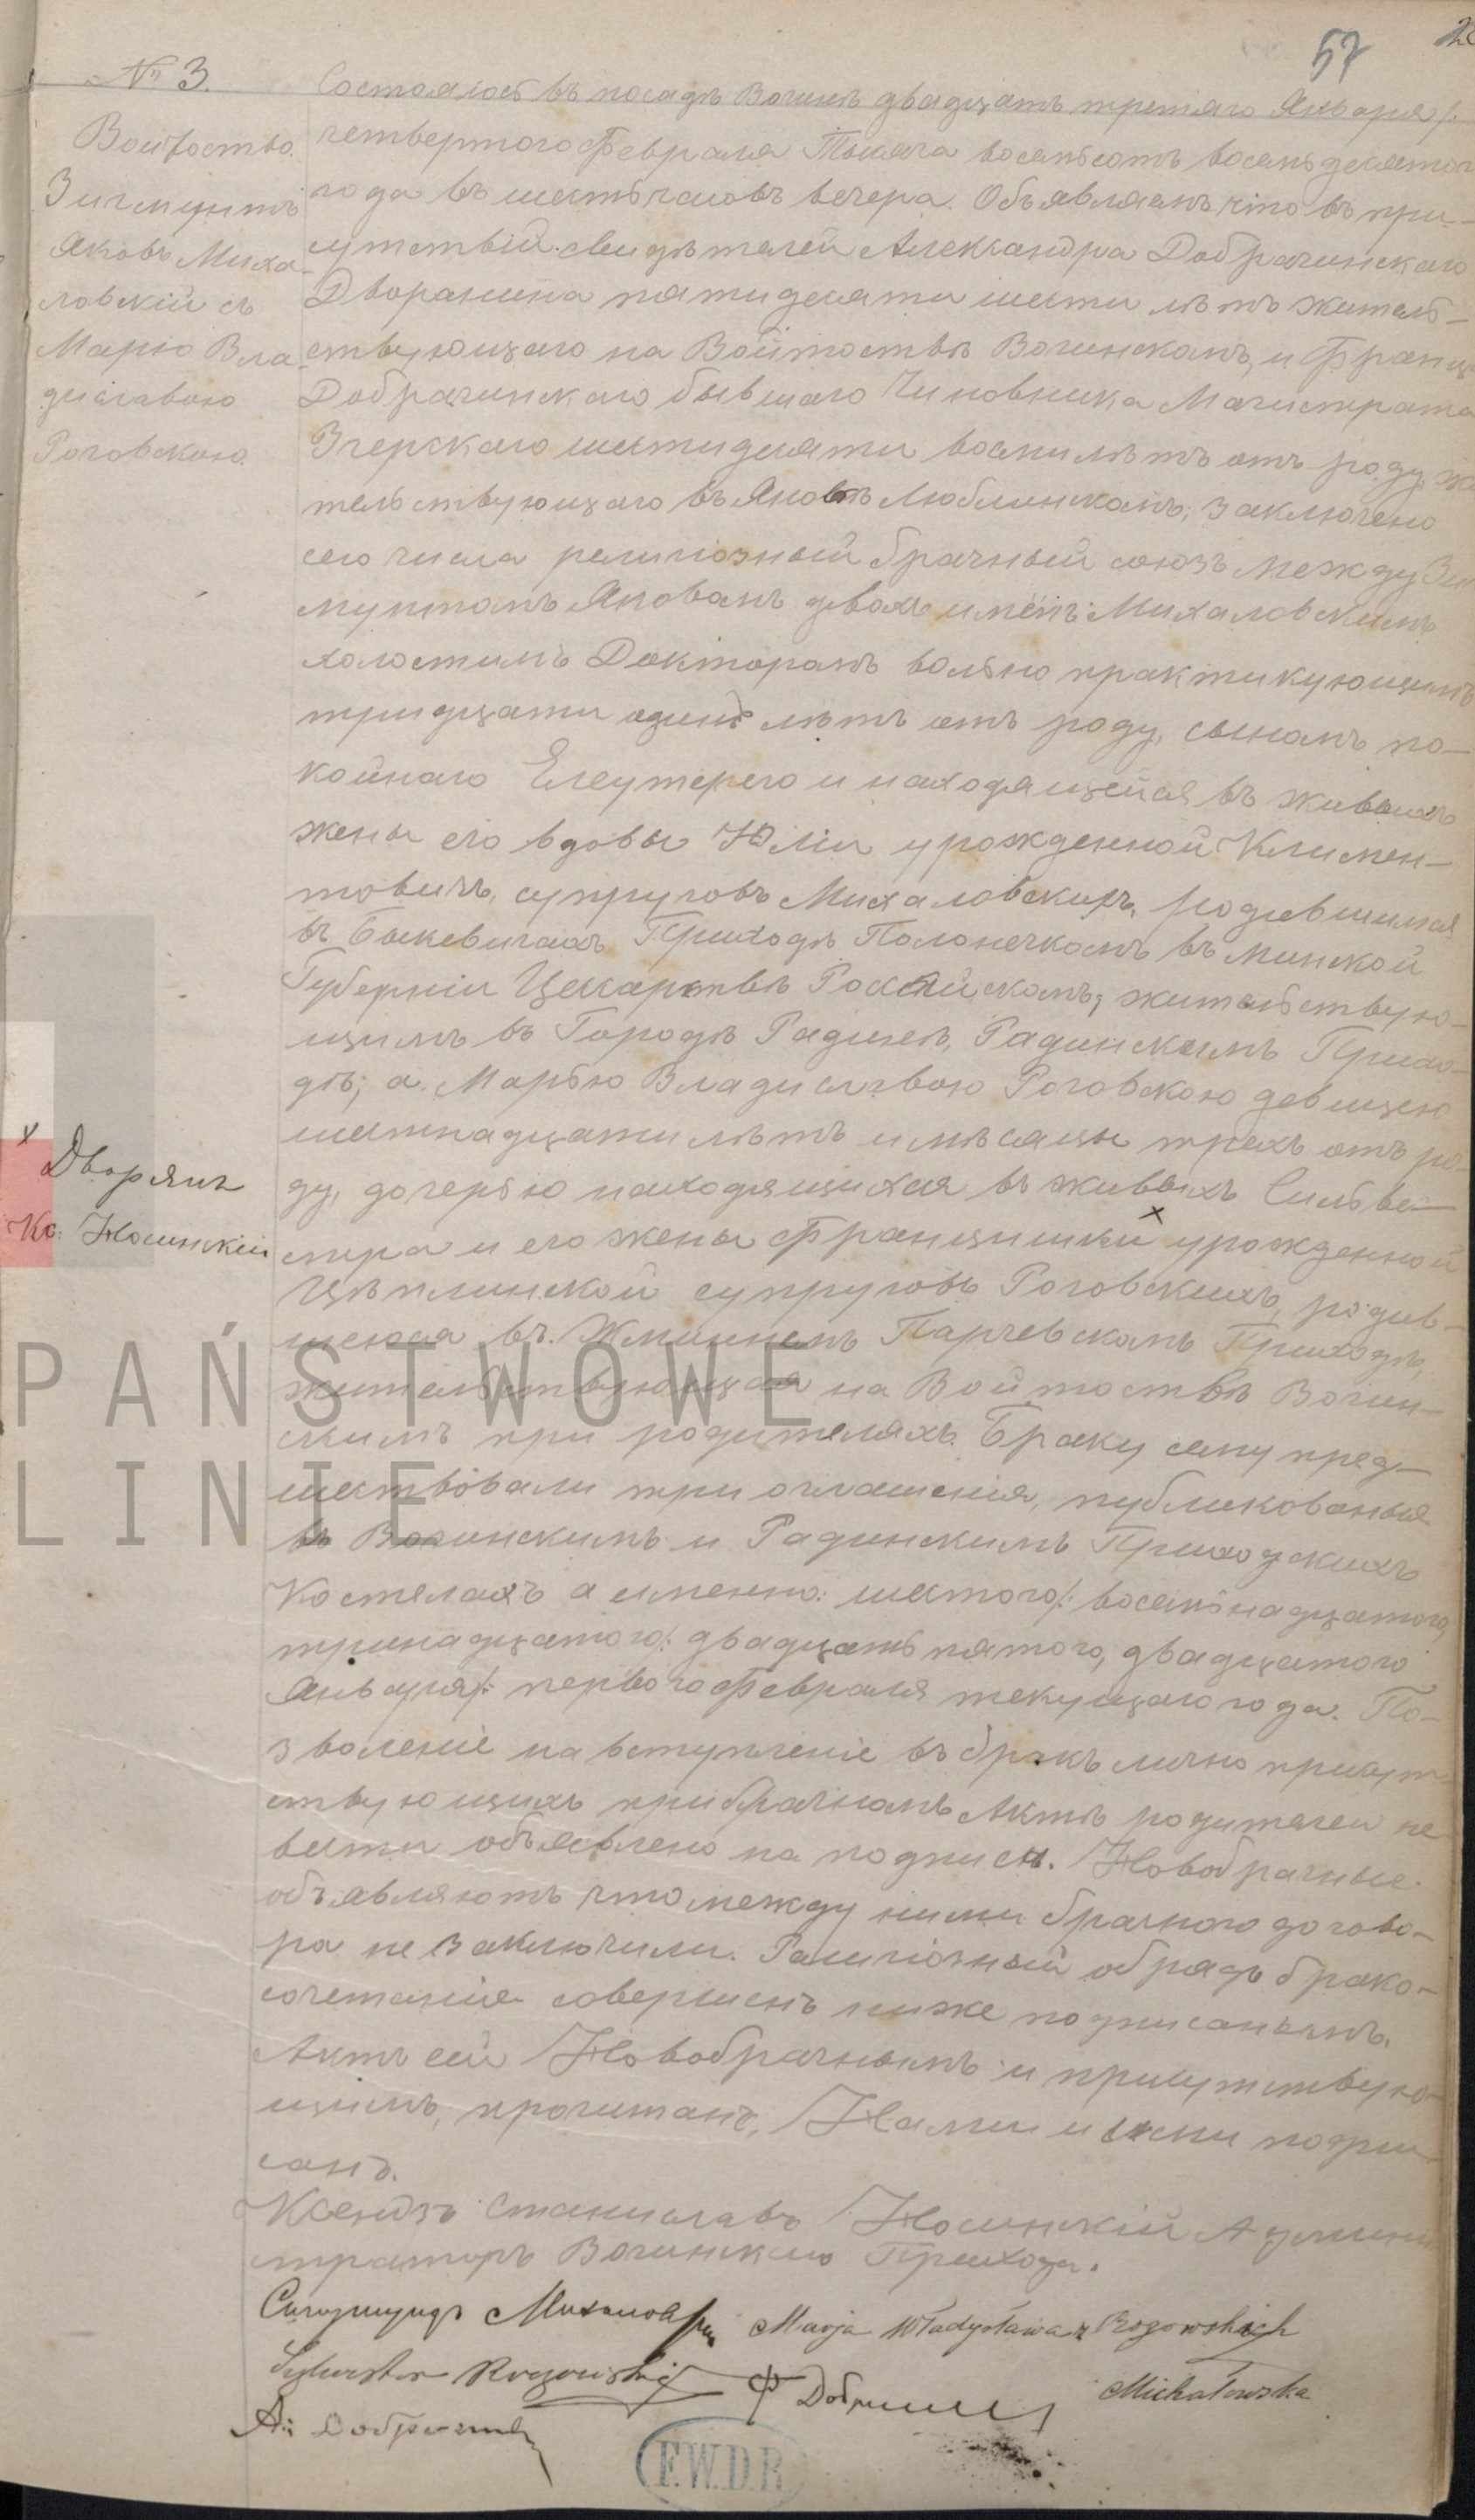 57
№ 3.
Войтоство.
Зигмунтъ
Яковъ Миха-
ловскій съ
Марію Вла-
диславою
Роговскою.
Состоялось въ посадѣ Вогинѣ двадцать третяго Января /:
четвертого Февраля Тысяча восемьсотъ восемьдесятого
года въ шесть часовъ вечера. Объявляемъ что въ при-
сутствій свидѣтелей Александра Добрачинскаго
Дворянина пятидесяти шести лѣтъ жительс-
ствующаго на Войтоствѣ Вогинскомъ, и Франц
Добрачинскаго бывшаго Чиновника Магистрата
Згерскаго шестидесяти восми лѣтъ отъ роду, ж
тельствующаго въ Яновѣ Люблинскомъ; заключено
сего числа религіозный брачный союзъ между Зиг
мунтомъ Яковомъ двохъ имёнъ Михаловскимъ
холостимъ Докторомъ вольно практикующимъ
тридцати одинъ лѣтъ отъ роду, сыномъ по-
койнаго Елеутерего и находящейся въ живыхъ
жены его вдовы Юліи урожденной Климен-
товичъ, супруговъ Михаловскихъ, родившимся
въ Быкевичахъ Приходѣ Полонечкомъ въ Минской
Губерніи Цесарствѣ Россійскомъ, жительствую-
щимъ въ Городѣ Радинѣ, Радинскимъ Прихо-
дѣ; а Марью Владиславою Роговскою девицею
шестнадцати лѣтъ и мѣсяцы трехъ отъ ро-
ду, дочерью находящихся въ живыхъ Сильве-
стра и его жены Францишки x урожденной
Цѣплинской супруговъ Роговскихъ, родив-
шеюся въ Жминнемъ Парчевскомъ Приходѣ,
жительствующая на Войтоствѣ Вогин-
скимъ при родителяхъ. Браку сему пред-
шествовали три оглашенія, публикованыя
въ Вогинскимъ и Радинскимъ Приходскихъ
Костелахъ а именно: шестого/: восемьнадцатого,
тринадцатого/: двадцать пятого, двадцатого
Января/: первого Февраля текущаго года. По-
зволеніе на вступленіе въ бракъ лично присут-
ствующихъ при брачномъ Актѣ родителей не
весты объявлено на подписи. Новобрачные
объявляютъ что между ними брачного догово-
ра не заключили. Религіозный обрядъ брако-
сочетанія совершенъ ниже подписанымъ.
Актъ сей Новобрачнымъ и присутствую-
щимъ, прочитанъ, Нами и ими подпи-
санъ.
x Дворянъ
Кс: Носинскій
Ксендзъ Станиславъ Носинскій Админи
страторъ Вогинскаго Прихода.
Сигизмундъ Михаловскій Marja Władysława z Rogowskich
Michałowska
Sylwester Rogowski Ф Добрачинскій
Ал Добрачинскій
F.W.D.R.
PAŃSTWOWE
LINIE